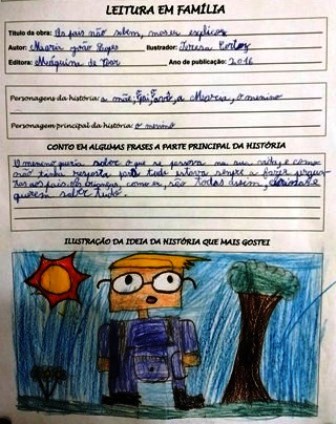 LEITURA EM FAMÍLIA
Título da obra: Os pais não sabem, mas eu explico
Autor: Maria João Lopes Ilustrador: Teresa Cortez
Editora: Máquina de Voar Ano de publicação: 2016
Personagens da história: a mãe, Pai, avó, a Maria, o menino
Personagem principal da história: o menino
CONTO EM ALGUMAS FRASES A PARTE PRINCIPAL DA HISTÓRIA
O menino queria saber o que se passava na sua cabeça e como
não tinha resposta para tudo estava sempre a fazer pergun-
tas aos pais. As crianças, como eu, são todas assim, curiosas e
querem saber tudo.
ILUSTRAÇÃO DA IDEIA DA HISTÓRIA QUE MAIS GOSTEI